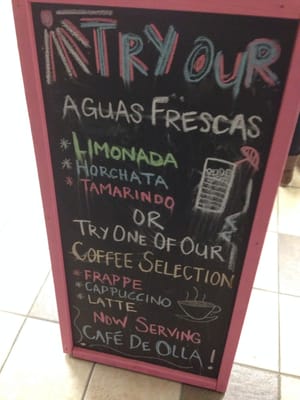 TRY OUR
AGUAS FRESCAS
* LIMONADA
* HORCHATA
* TAMARINDO
OR
TRY ONE OF OUR
COFFEE SELECTION
* FRAPPE
* CAPPUCCINO
* LATTE
NOW SERVING
CAFÉ DE OLLA!